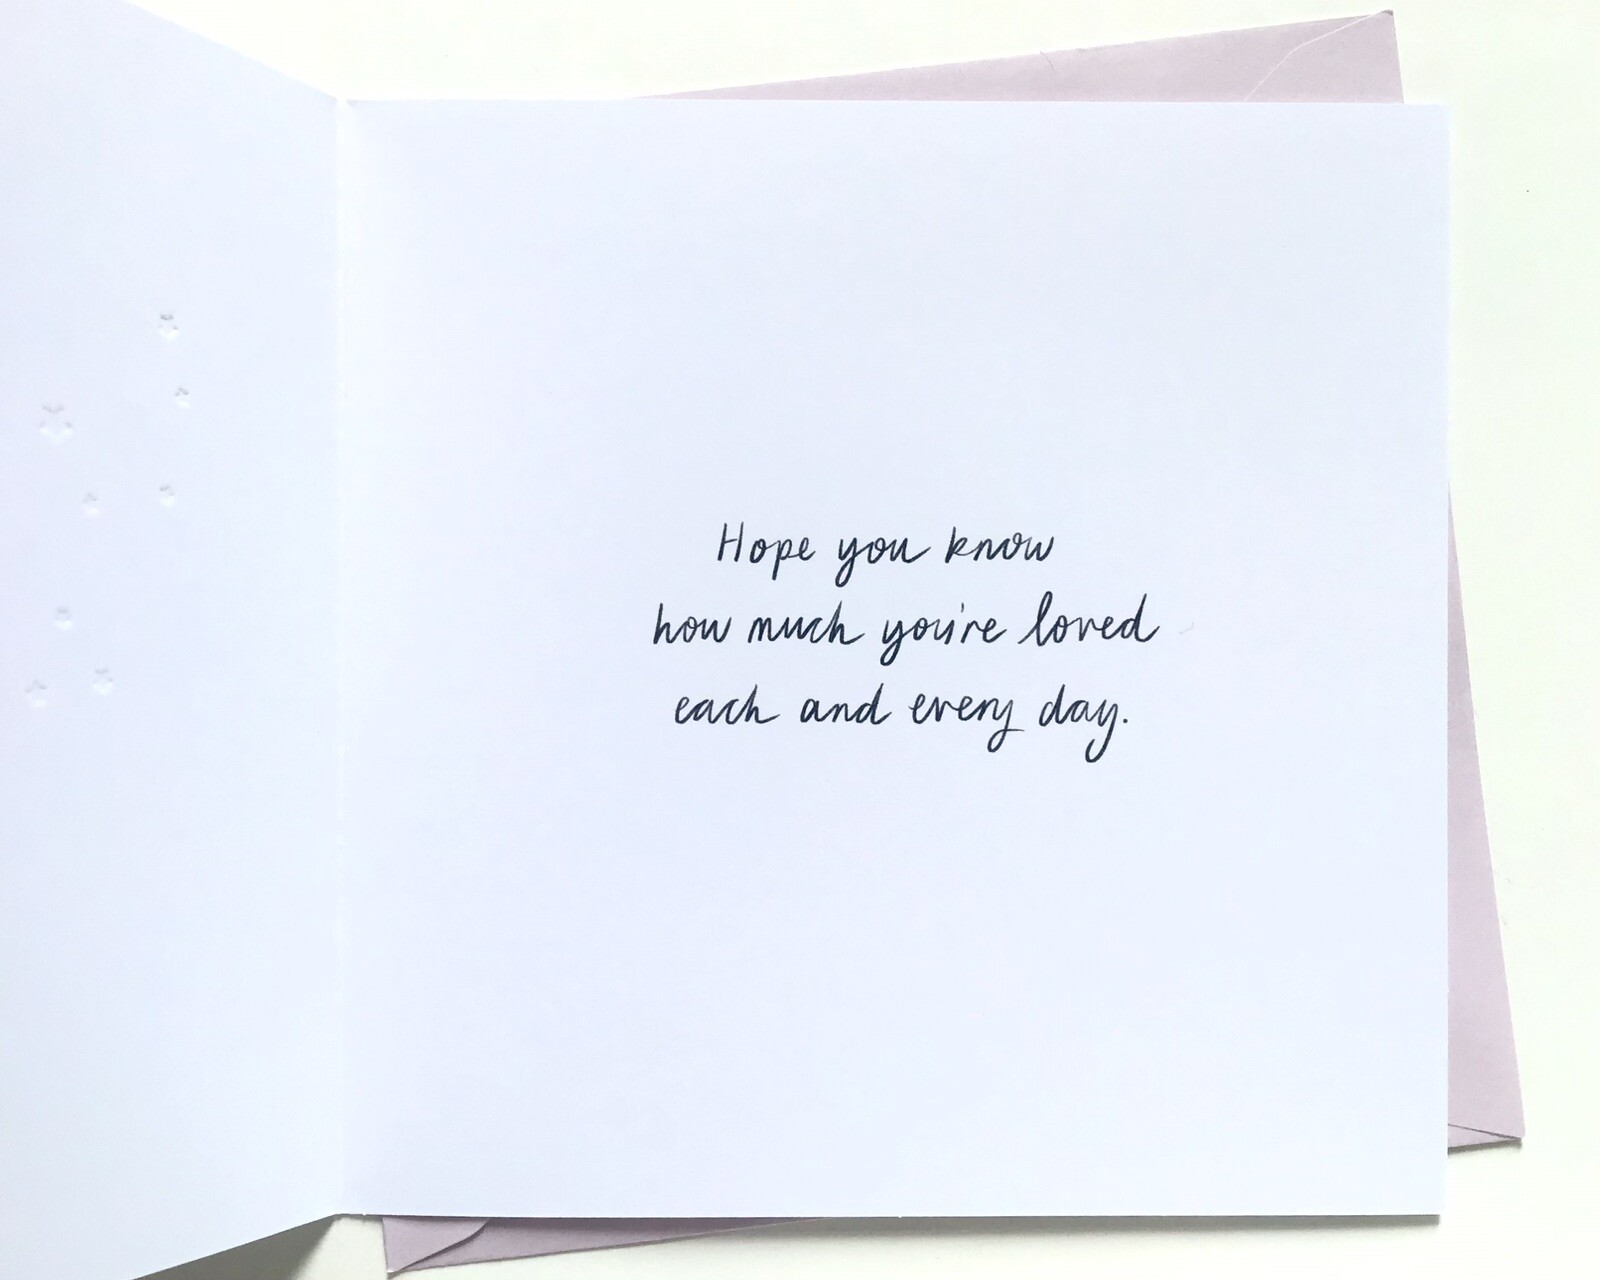 Hope you know
how much you're loved
each and every day.